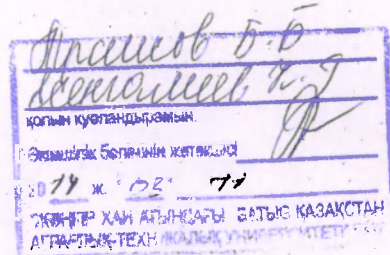 Траисов Б.Б
қолын куәландырамын.
Әкімшілік бөлімінің жетекшісі
2014 ж. "02" 11
ЖӘҢГІР ХАН АТЫНДАҒЫ БАТЫС ҚАЗАҚСТАН
АГРАРЛЫҚ-ТЕХНИКАЛЫҚ УНИВЕРСИТЕТІ